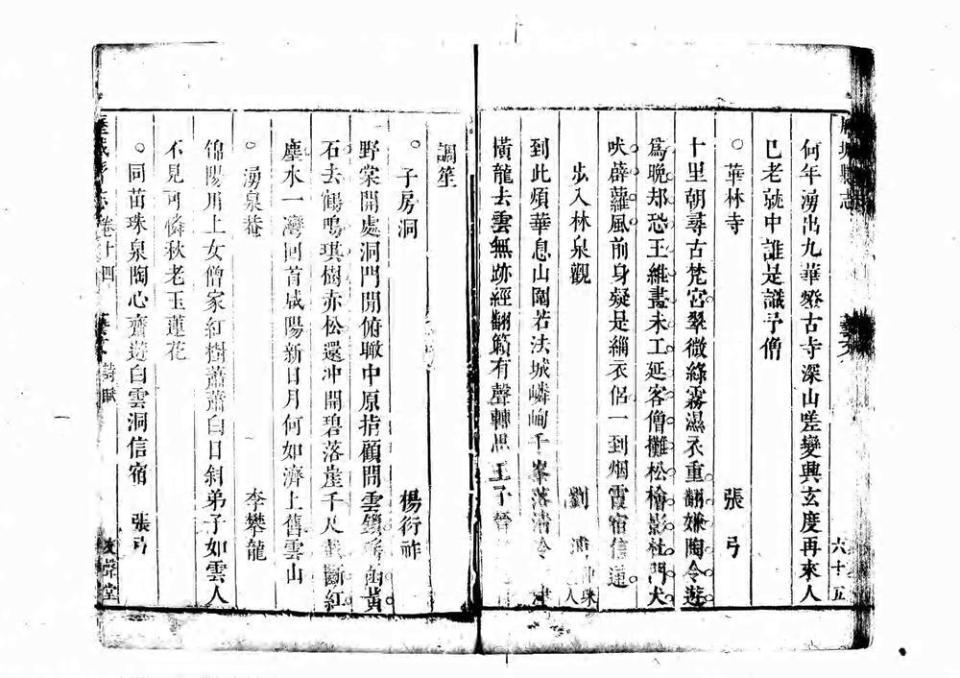 歷城縣志
六十五
何年湧出九華蹤古寺深山嗟變興玄度再來人
已老就中誰是識予僧
○華林寺 張弓
十里朝尋古梵宮翠微綠霧濕衣重翻嫌陶令遊
爲晚却恐王維畫未工延客僧攤松檜影杜門犬
吠薜蘿風前身疑是緇衣侶一到烟霞宿信通
步入林泉觀 劉
到此煩華息山園若法城嶙峋千峯落清冷
橫龍去雲無跡經翻笥有聲轉思王子晉
調笙
○子房洞 楊衍祚
野棠開處洞門開俯瞰中原指顧間雲黃
石去鶴鳴琪樹赤松還冲開碧落崖千尺斷紅
塵水一灣回首咸陽新日月何如濟上舊雲山
○湧泉菴 李攀龍
錦陽川上女僧家紅樹蕭蕭白日斜弟子如雲人
不見可憐秋老玉蓮花
○同苗珠泉陶心齋遊白雲洞信宿 張弓
歷城縣志卷十四
詩賦
友聲堂